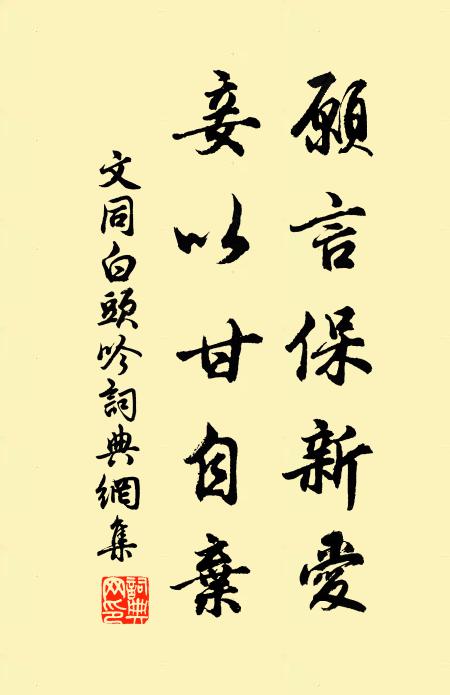 願言保新愛
妾以甘自棄
文同白頭吟詞典網集
詞典網印